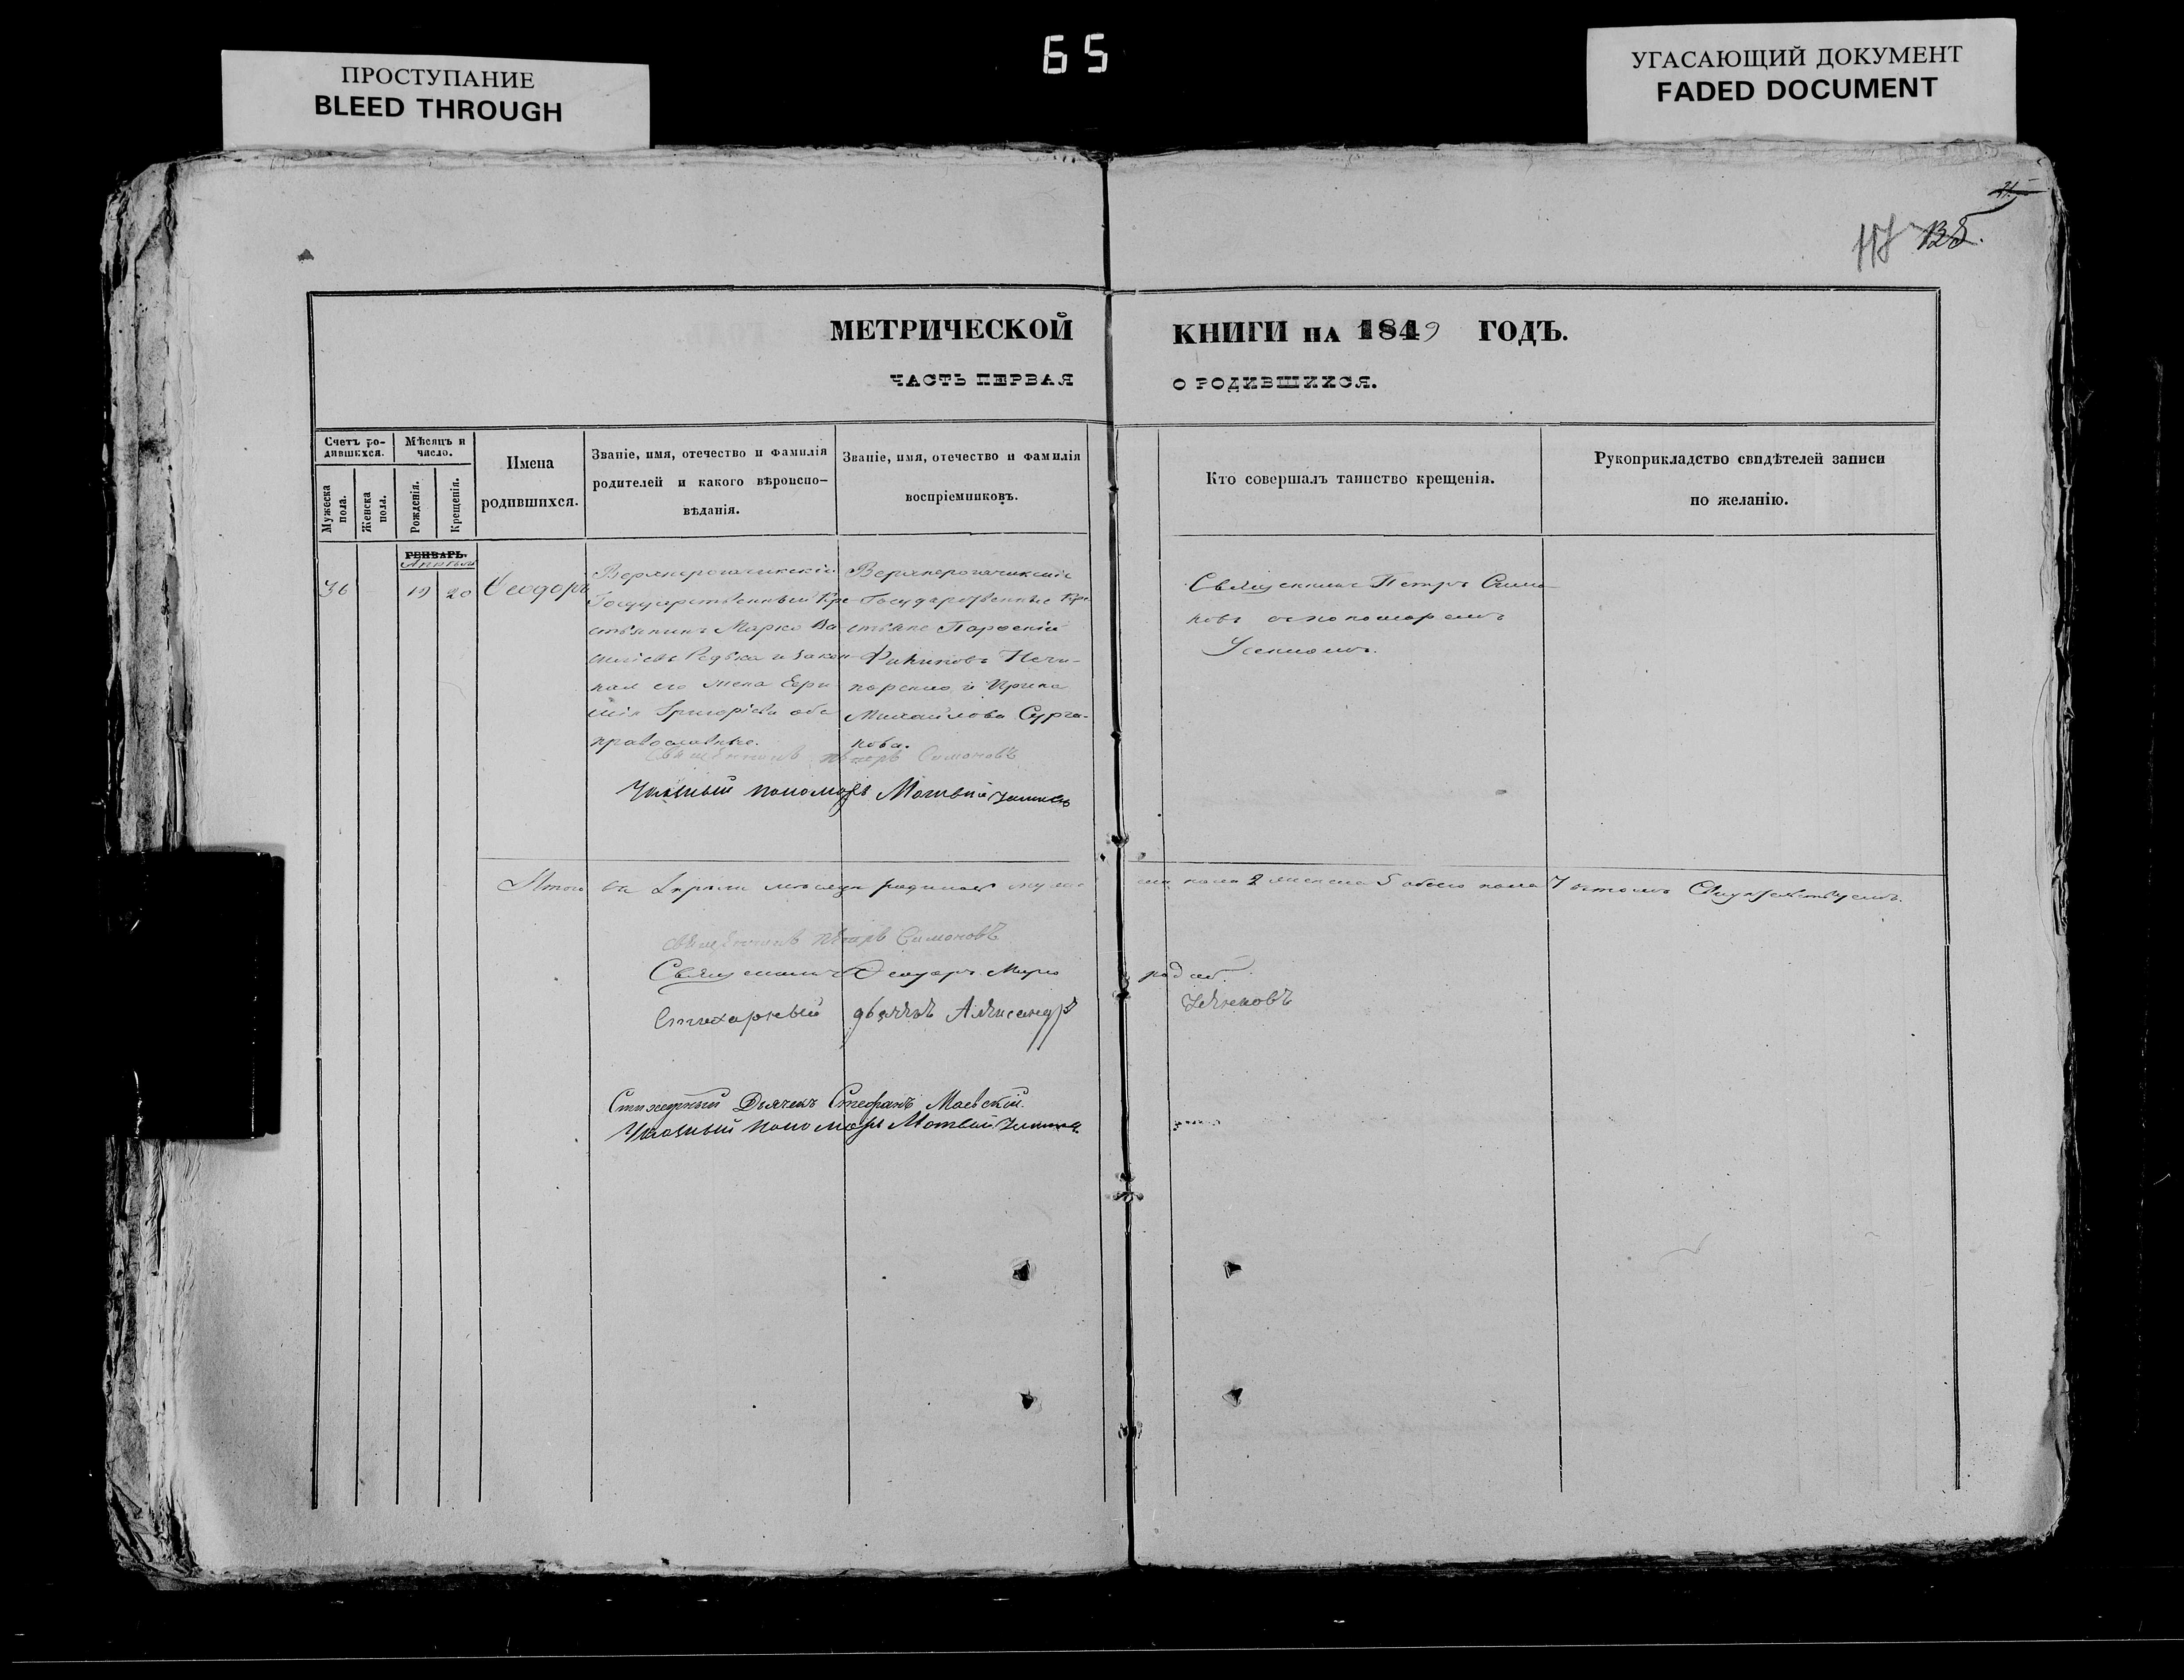 ПРОСТУПАНИЕ
BLEED THROUGH
65
УГАСАЮЩИЙ ДОКУМЕНТ
FADED DOCUMENT
МЕТРИЧЕСКОЙ КНИГИ НА 1849 ГОДЪ.
ЧАСТЬ ПЕРВАЯ О РОДИВШИХСЯ.
Счетъ ро-
дившихся.
Мужеска
пола.
Женска
пола.
Мѣсяцъ и
число.
Рожденія.
Крещенія.
Имена
родившихся.
Званіе, имя, отечество и фамилія
родителей и какого вѣроиспо-
вѣданія.
Званіе, имя, отечество и фамилія
воспріемниковъ.
Кто совершалъ таинство крещенія.
Рукоприкладство свидѣтелей записи
по желанію.
ГЕНВАРЬ.
Апрель
36
19
20
Ѳеодоръ
Верхнерогачикскій
Государственный Кре
стьянинъ Марко Ва
сильевъ Редька и закон
ная его жена
Григорьева оба
православные.
Верхнерогачикскіе
Государственные Кре
стьяне
Нечи-
поренко и Ирина
Михайлова Сурга-
нова.
Священникъ Петръ Симо-
новъ съ пономаремъ
Священникъ Петръ Симоновъ
пономарь Матвей
Итого въ Апреле месяце родилось муже
ска пола 2 женска 5 обоего пола 7 въ томъ Свидетельствуемъ.
Священникъ Петръ Симоновъ
Священникъ Ѳеодоръ
Стихарный дьячекъ Александръ
Стихарный Дьячекъ Стефанъ Маевскій.
пономарь Матвей